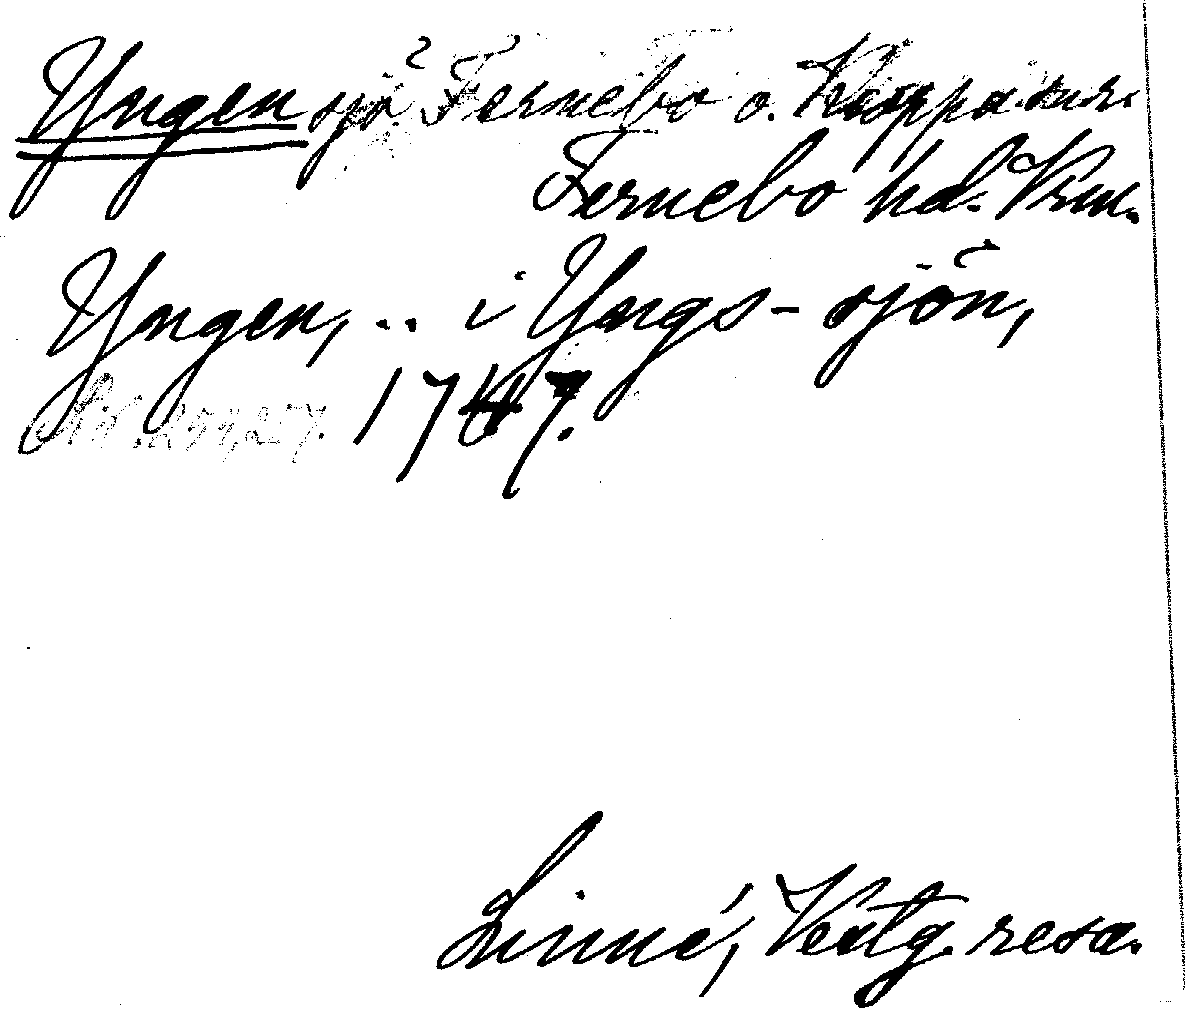 Yngen sjö Fernebo o. Kroppa snr.
Fernebo hd. Vrm.
Yngen, .. i Yngs-sjön,
1747.
Linné, Västg. resa.